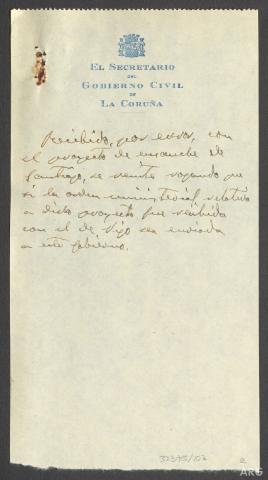 EL SECRETARIO
DEL
GOBIERNO CIVIL
DE
LA CORUÑA
Recibido, por error, con
el proyecto de ensanche de
Santiago, se remite rogando que
si la orden ministerial relativa
a dicho proyecto fue recibida
con el de Vigo sea enviada
a este gobierno.
32345/102
2
ARG